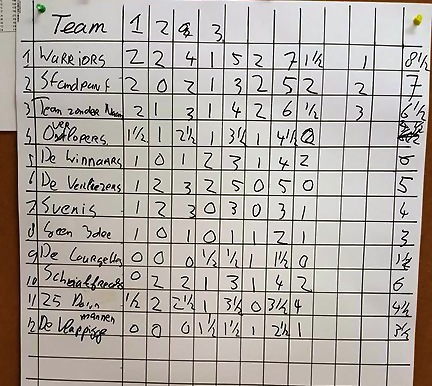 Team 1 2 3
1 Warriors 2 2 4 1 5 2 7 1½ 1 8½
2 Standpunt 2 0 2 1 3 2 5 2 2 7
3 Team zonder Naam 2 1 3 1 4 2 6 ½ 3 6½
4 Overlopers 1½ 1 2½ 1 3½ 1 4½ 0
5 De Winnaars 1 0 1 2 3 1 4 2 6
6 De Verliezers 1 2 3 2 5 0 5 0 5
7 Svenis 1 2 3 0 3 0 3 1 4
8 Geen 3doe 1 0 1 0 1 1 2 1 3
9 De 0 0 0 ½ ½ 1 1½ 0 1½
10 0 2 2 1 3 1 4 2 6
11 25 ½ 2 2½ 1 3½ 0 3½ 4½
12 De mannen 0 0 0 1½ 1½ 1 2½ 1 3½